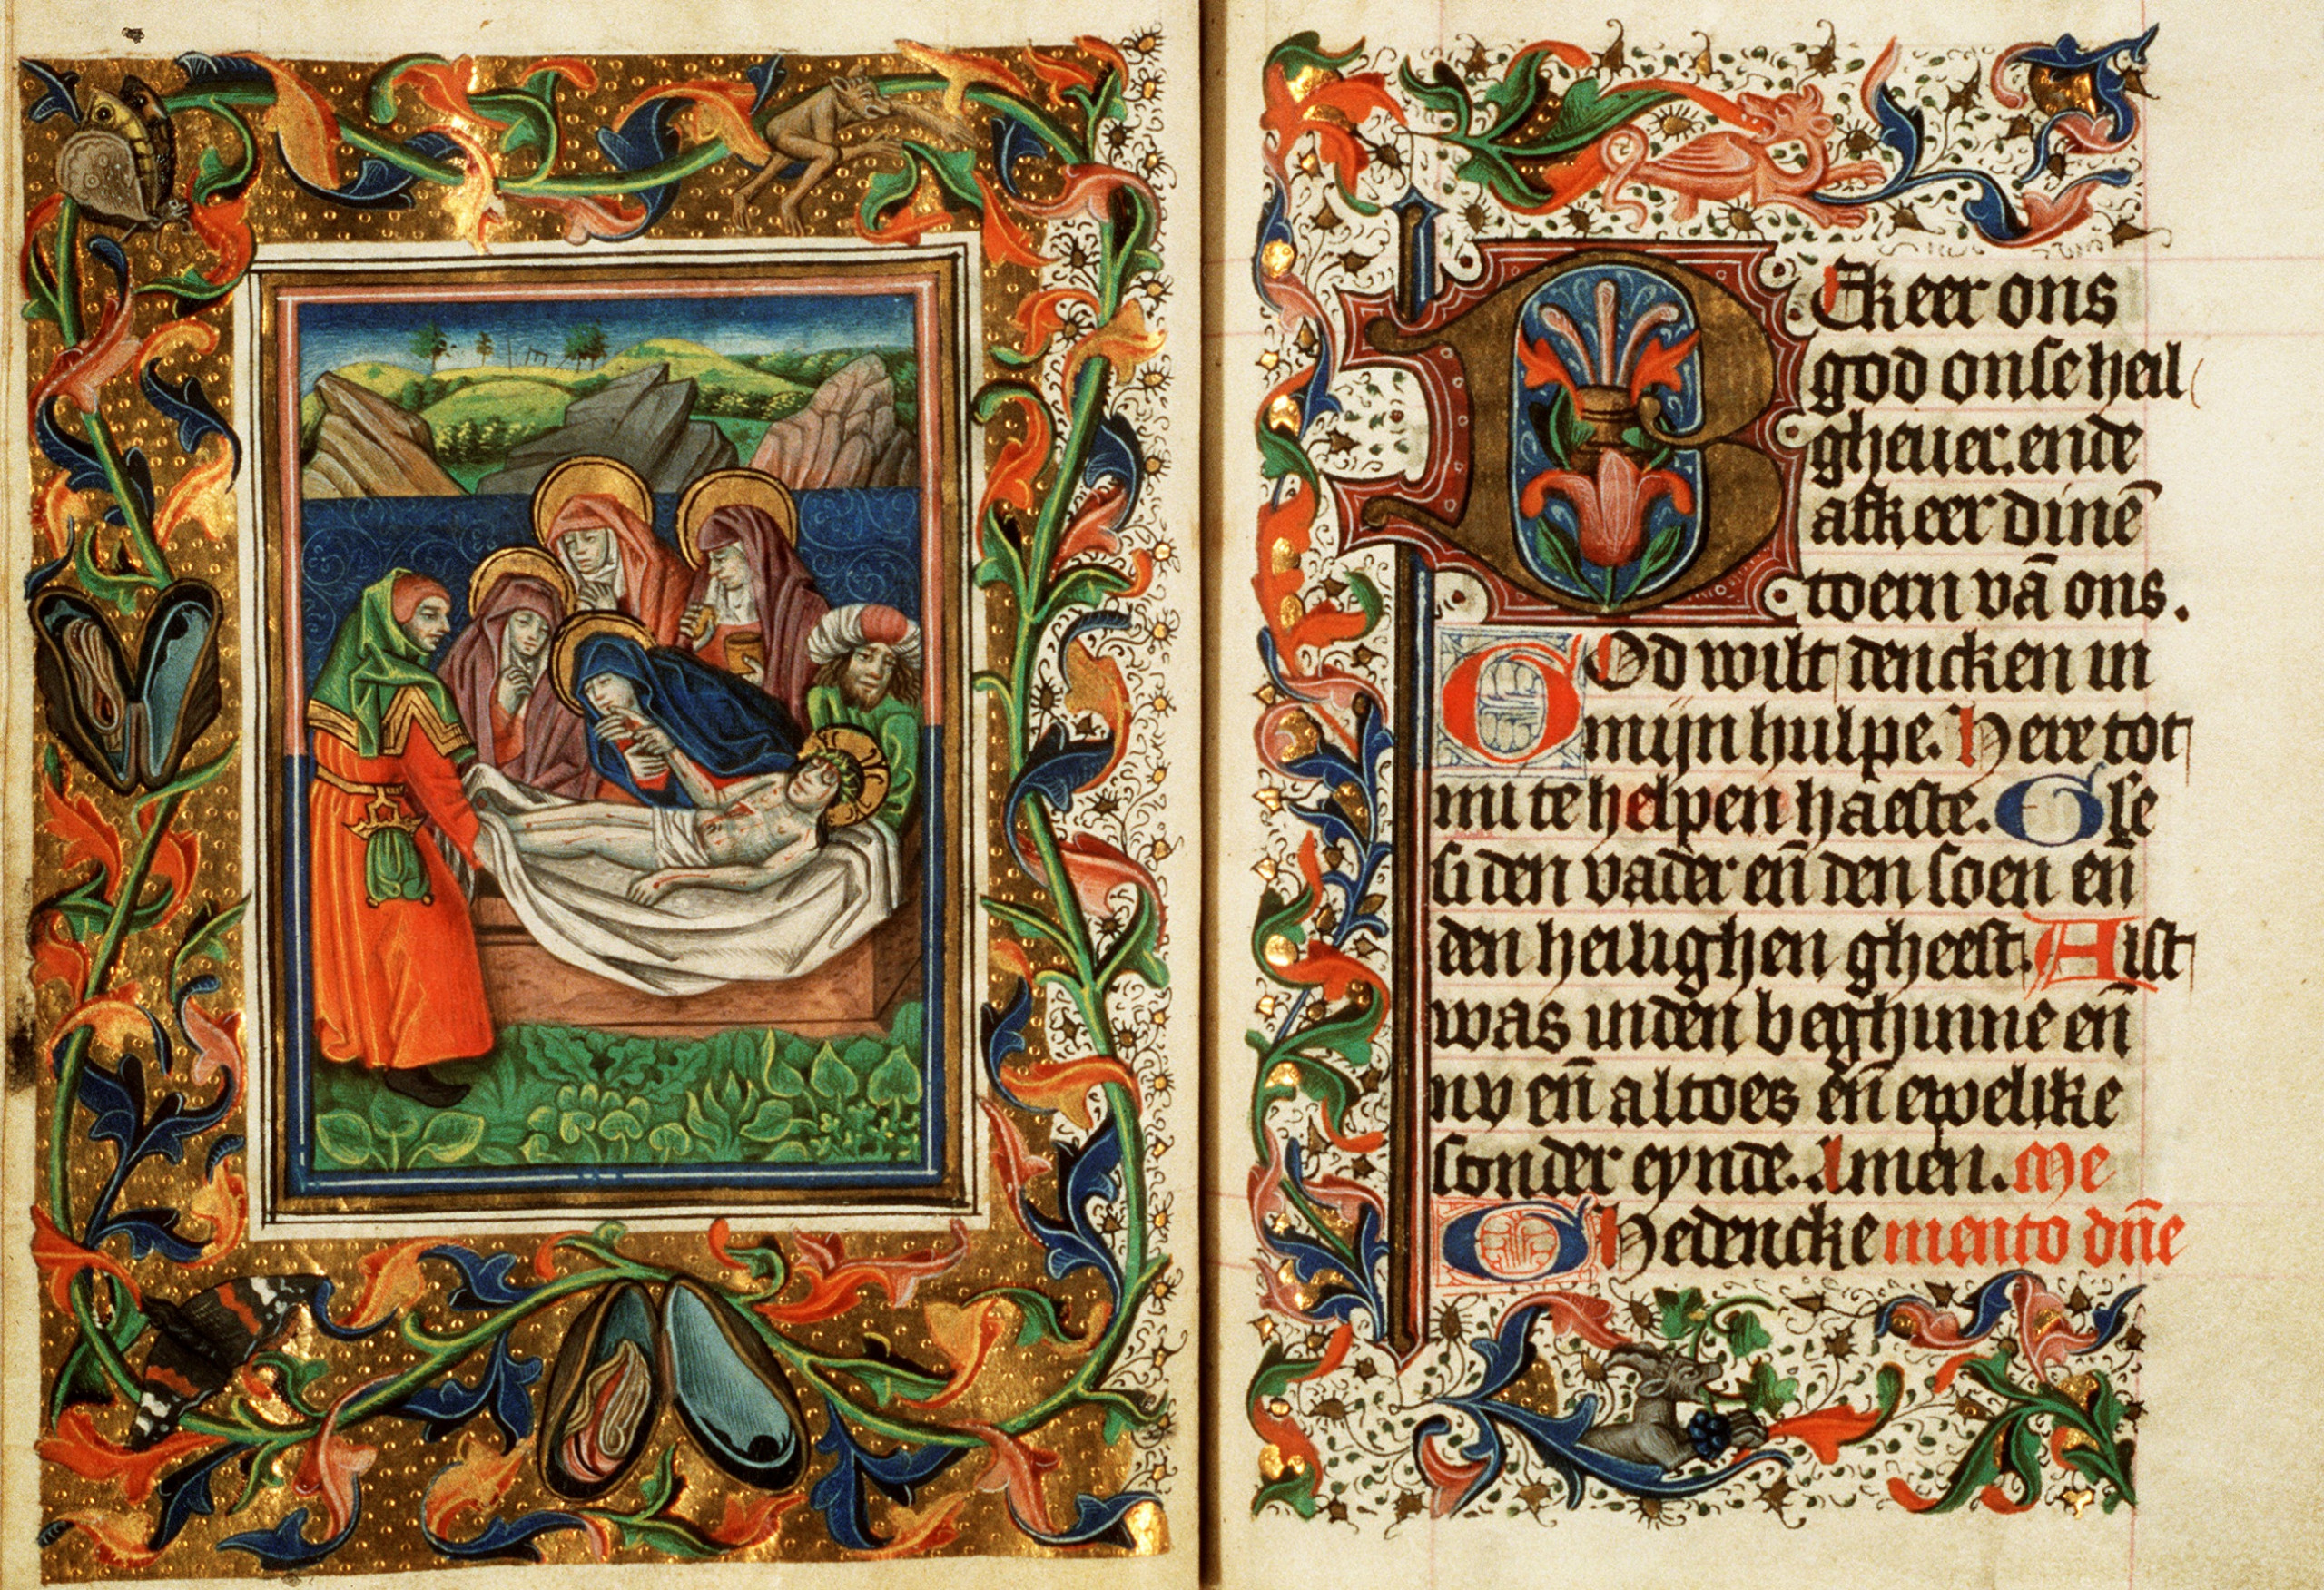 BEkeer ons
god onse heil
gheuer. ende
afkeer dinē
toern vā ons.
GOd wilt dencken in
mijn hulpe. Here tot
mi te helpen haeste. Gle
si den vader eñ den soen eñ
den heilighen gheest. Alst
was inden beghinne eñ
nv eñ altoes eñ ewelike
sonder eynde. Amen. Me
GHedencke mento dñe